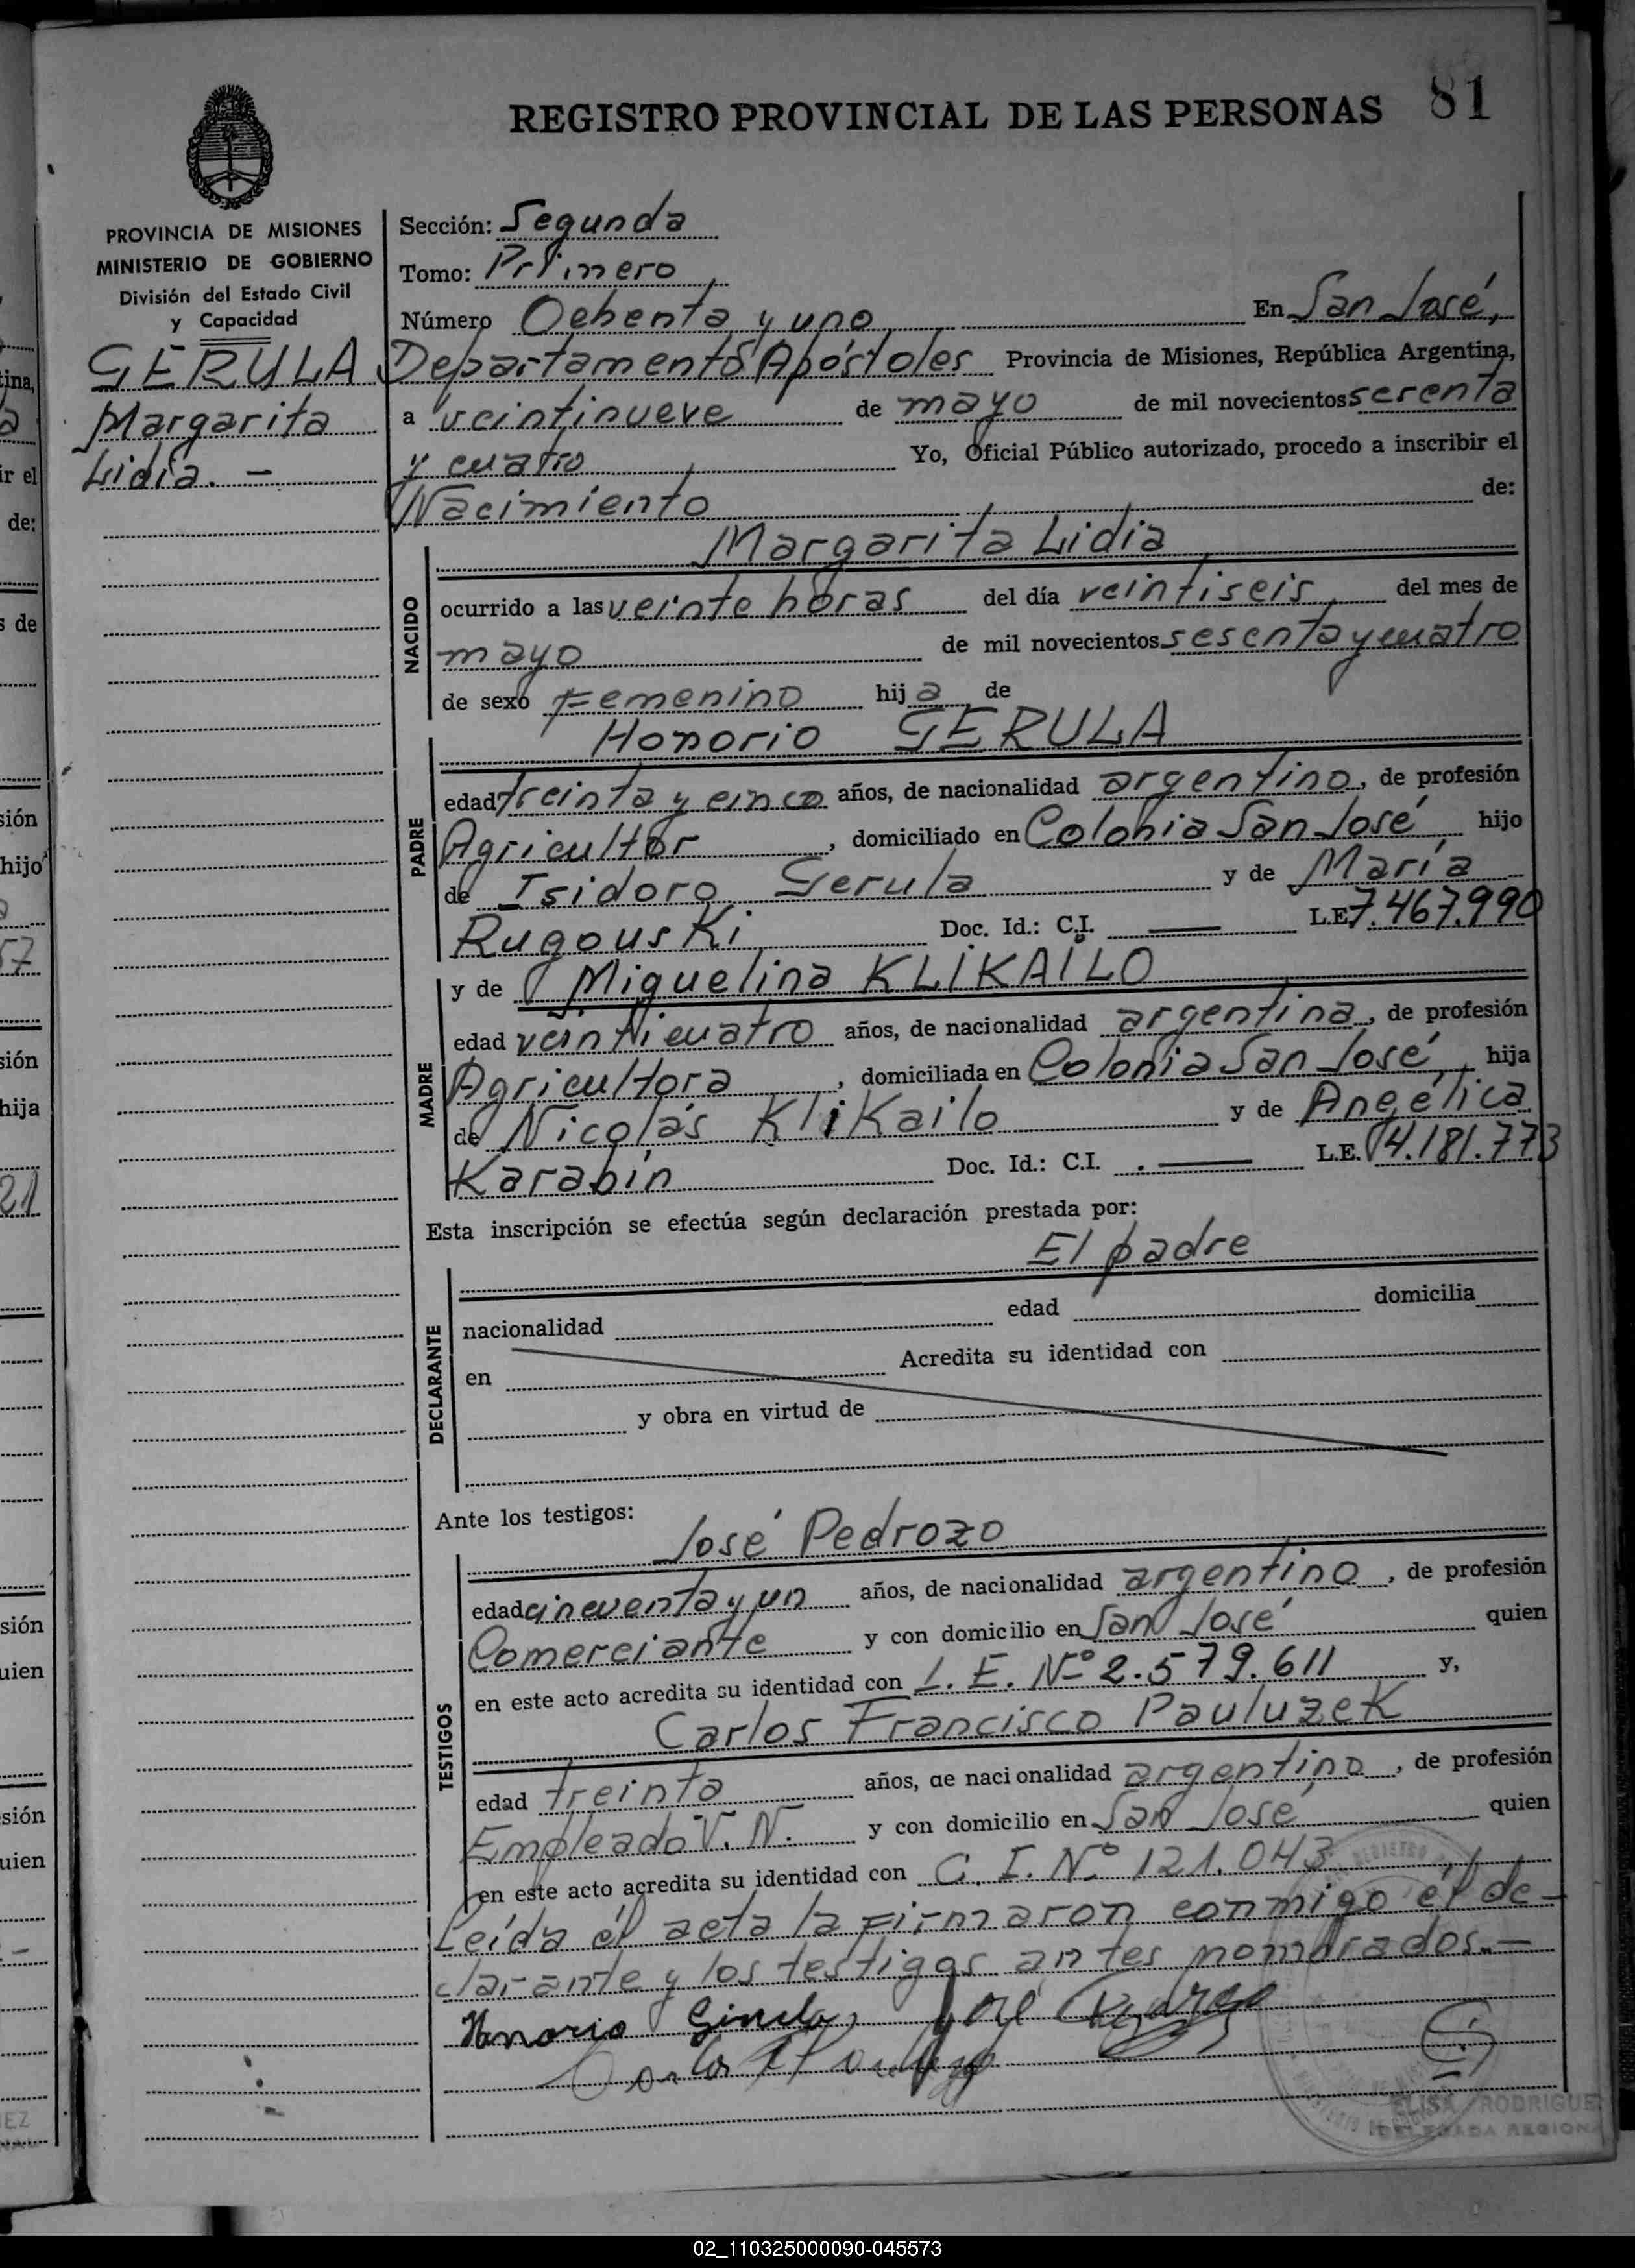 81
REGISTRO PROVINCIAL DE LAS PERSONAS
PROVINCIA DE MISIONES
MINISTERIO DE GOBIERNO
División del Estado Civil
y Capacidad
GERULA
Margarita
Lidia. —
Sección: Segunda
Tomo: Primero
Número Ochenta y uno En San José,
Departamento Apóstoles Provincia de Misiones, República Argentina,
a veintinueve de mayo de mil novecientos sesenta
y cuatro Yo, Oficial Público autorizado, procedo a inscribir el
Nacimiento de:
NACIDO
Margarita Lidia
ocurrido a las veinte horas del día veintiseis del mes de
mayo de mil novecientos sesenta y cuatro
de sexo Femenino hija de
PADRE
Honorio GERULA
edad treinta y cinco años, de nacionalidad argentino, de profesión
Agricultor, domiciliado en Colonia San José hijo
de Isidoro Gerula y de María
Rugouski Doc. Id.: C.I. — L.E. 7.467.990
MADRE
y de Miguelina KLIKAILO
edad veinticuatro años, de nacionalidad argentina, de profesión
Agricultora, domiciliada en Colonia San José, hija
de Nicolás Klikailo y de Angélica
Karabin Doc. Id.: C.I. — L.E. 4.181.773
Esta inscripción se efectúa según declaración prestada por:
DECLARANTE
El padre
nacionalidad edad domicilia
en Acredita su identidad con
y obra en virtud de
Ante los testigos:
TESTIGOS
José Pedrozo
edad cincuenta y un años, de nacionalidad argentino, de profesión
Comerciante y con domicilio en San José quien
en este acto acredita su identidad con L. E. Nº 2.579.611 y,
Carlos Francisco Pauluzek
edad treinta años, de nacionalidad argentino, de profesión
Empleado V. N. y con domicilio en San José quien
en este acto acredita su identidad con C. I. Nº 121.043
Leída el acta la firmaron conmigo él de-
clarante y los testigos antes nombrados.—
Honorio
José
ELISA RODRIGUE
DELEGADA REGIONA
02_110325000090-045573